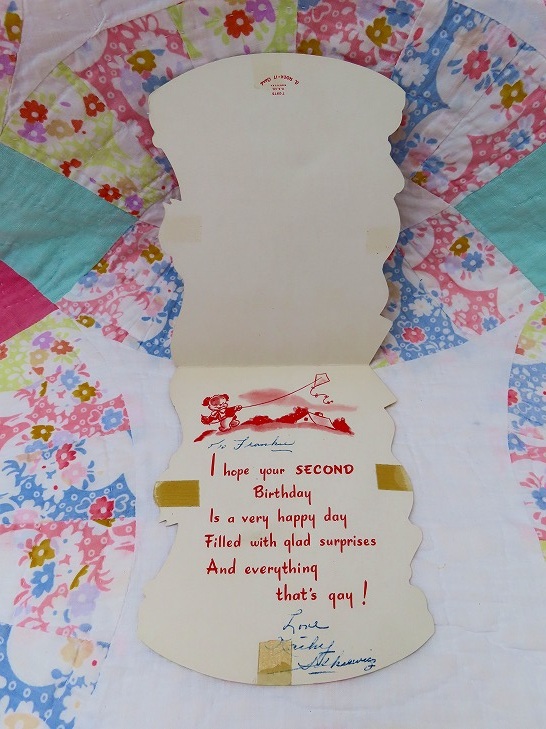 A RUST CRAFT
To Frankie
I hope your SECOND
Birthday
Is a very happy day
Filled with glad surprises
And everything
that's gay!
Love